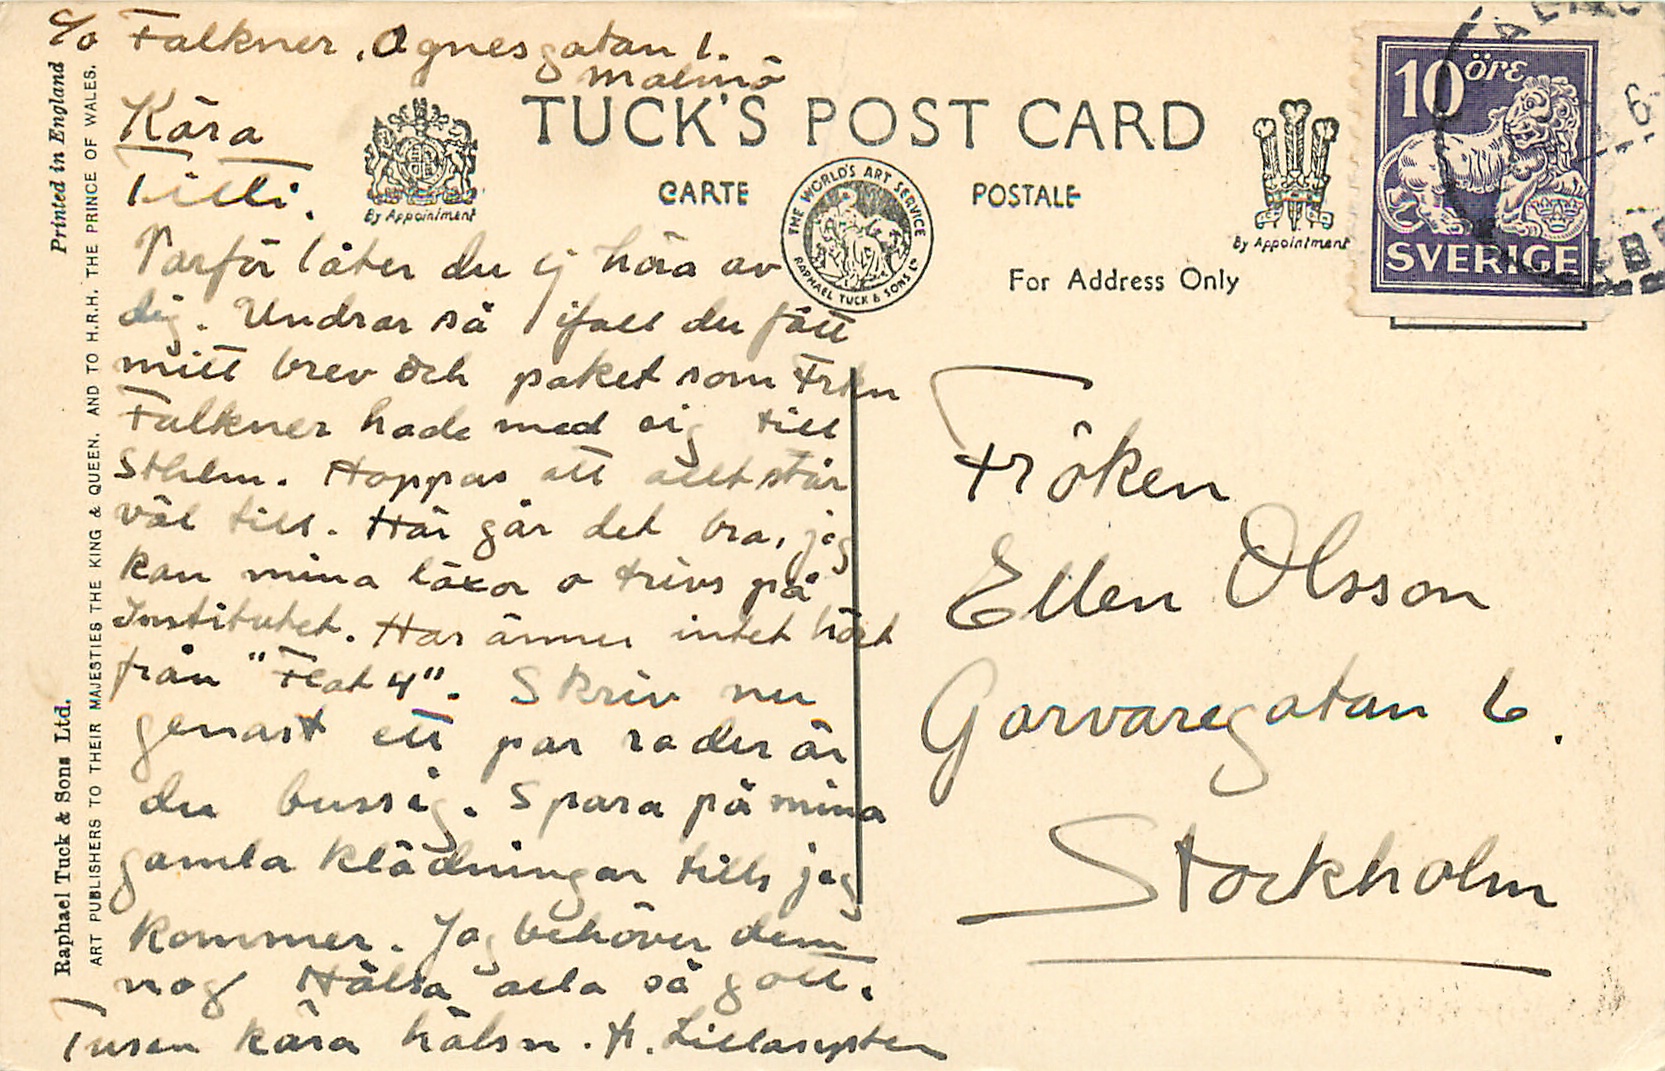 c/o Falkner, Agnesgatan 1.
Malmö
Kära
Titti.
Varför låter du ej höra av
dig. Undrar så ifall du fått
mitt brev och paket som Frkn
Falkner hade med sig till
Sthlm. Hoppas att allt står
väl till. Här går det bra, jag
kan mina läxor o trivs på
Institutet. Har ännu intet hört
från "Flat 4". Skriv nu
genast ett par rader är
du bussig. Spara på mina
gamla klädningar tills jag
kommer. Jag behöver dem
nog Hälsa alla så gott.
Tusen kära hälsn. fr. Lillasyster
TUCK'S POST CARD
CARTE POSTALE
By Appointment
THE WORLD'S ART SERVICE
RAPHAEL TUCK & SONS LD
By Appointment
For Address Only
10 öre
SVERIGE
6
Fröken
Ellen Olsson
Garvaregatan 6.
Stockholm
Printed in England
Raphael Tuck & Sons Ltd.
ART PUBLISHERS TO THEIR MAJESTIES THE KING & QUEEN, AND TO H.R.H. THE PRINCE OF WALES.